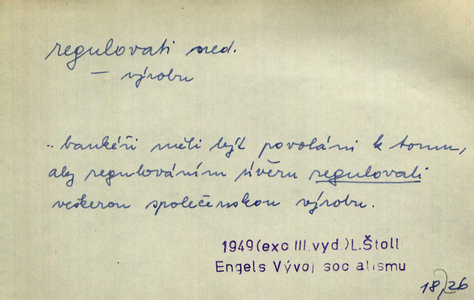 regulovati ned.
— výrobu
.. bankéři měli být povoláni k tomu,
aby regulováním úvěru regulovali
veškerou společenskou výrobu.
1949(exc III.vyd.)L.Štoll
Engels Vývoj soc alismu
18/26